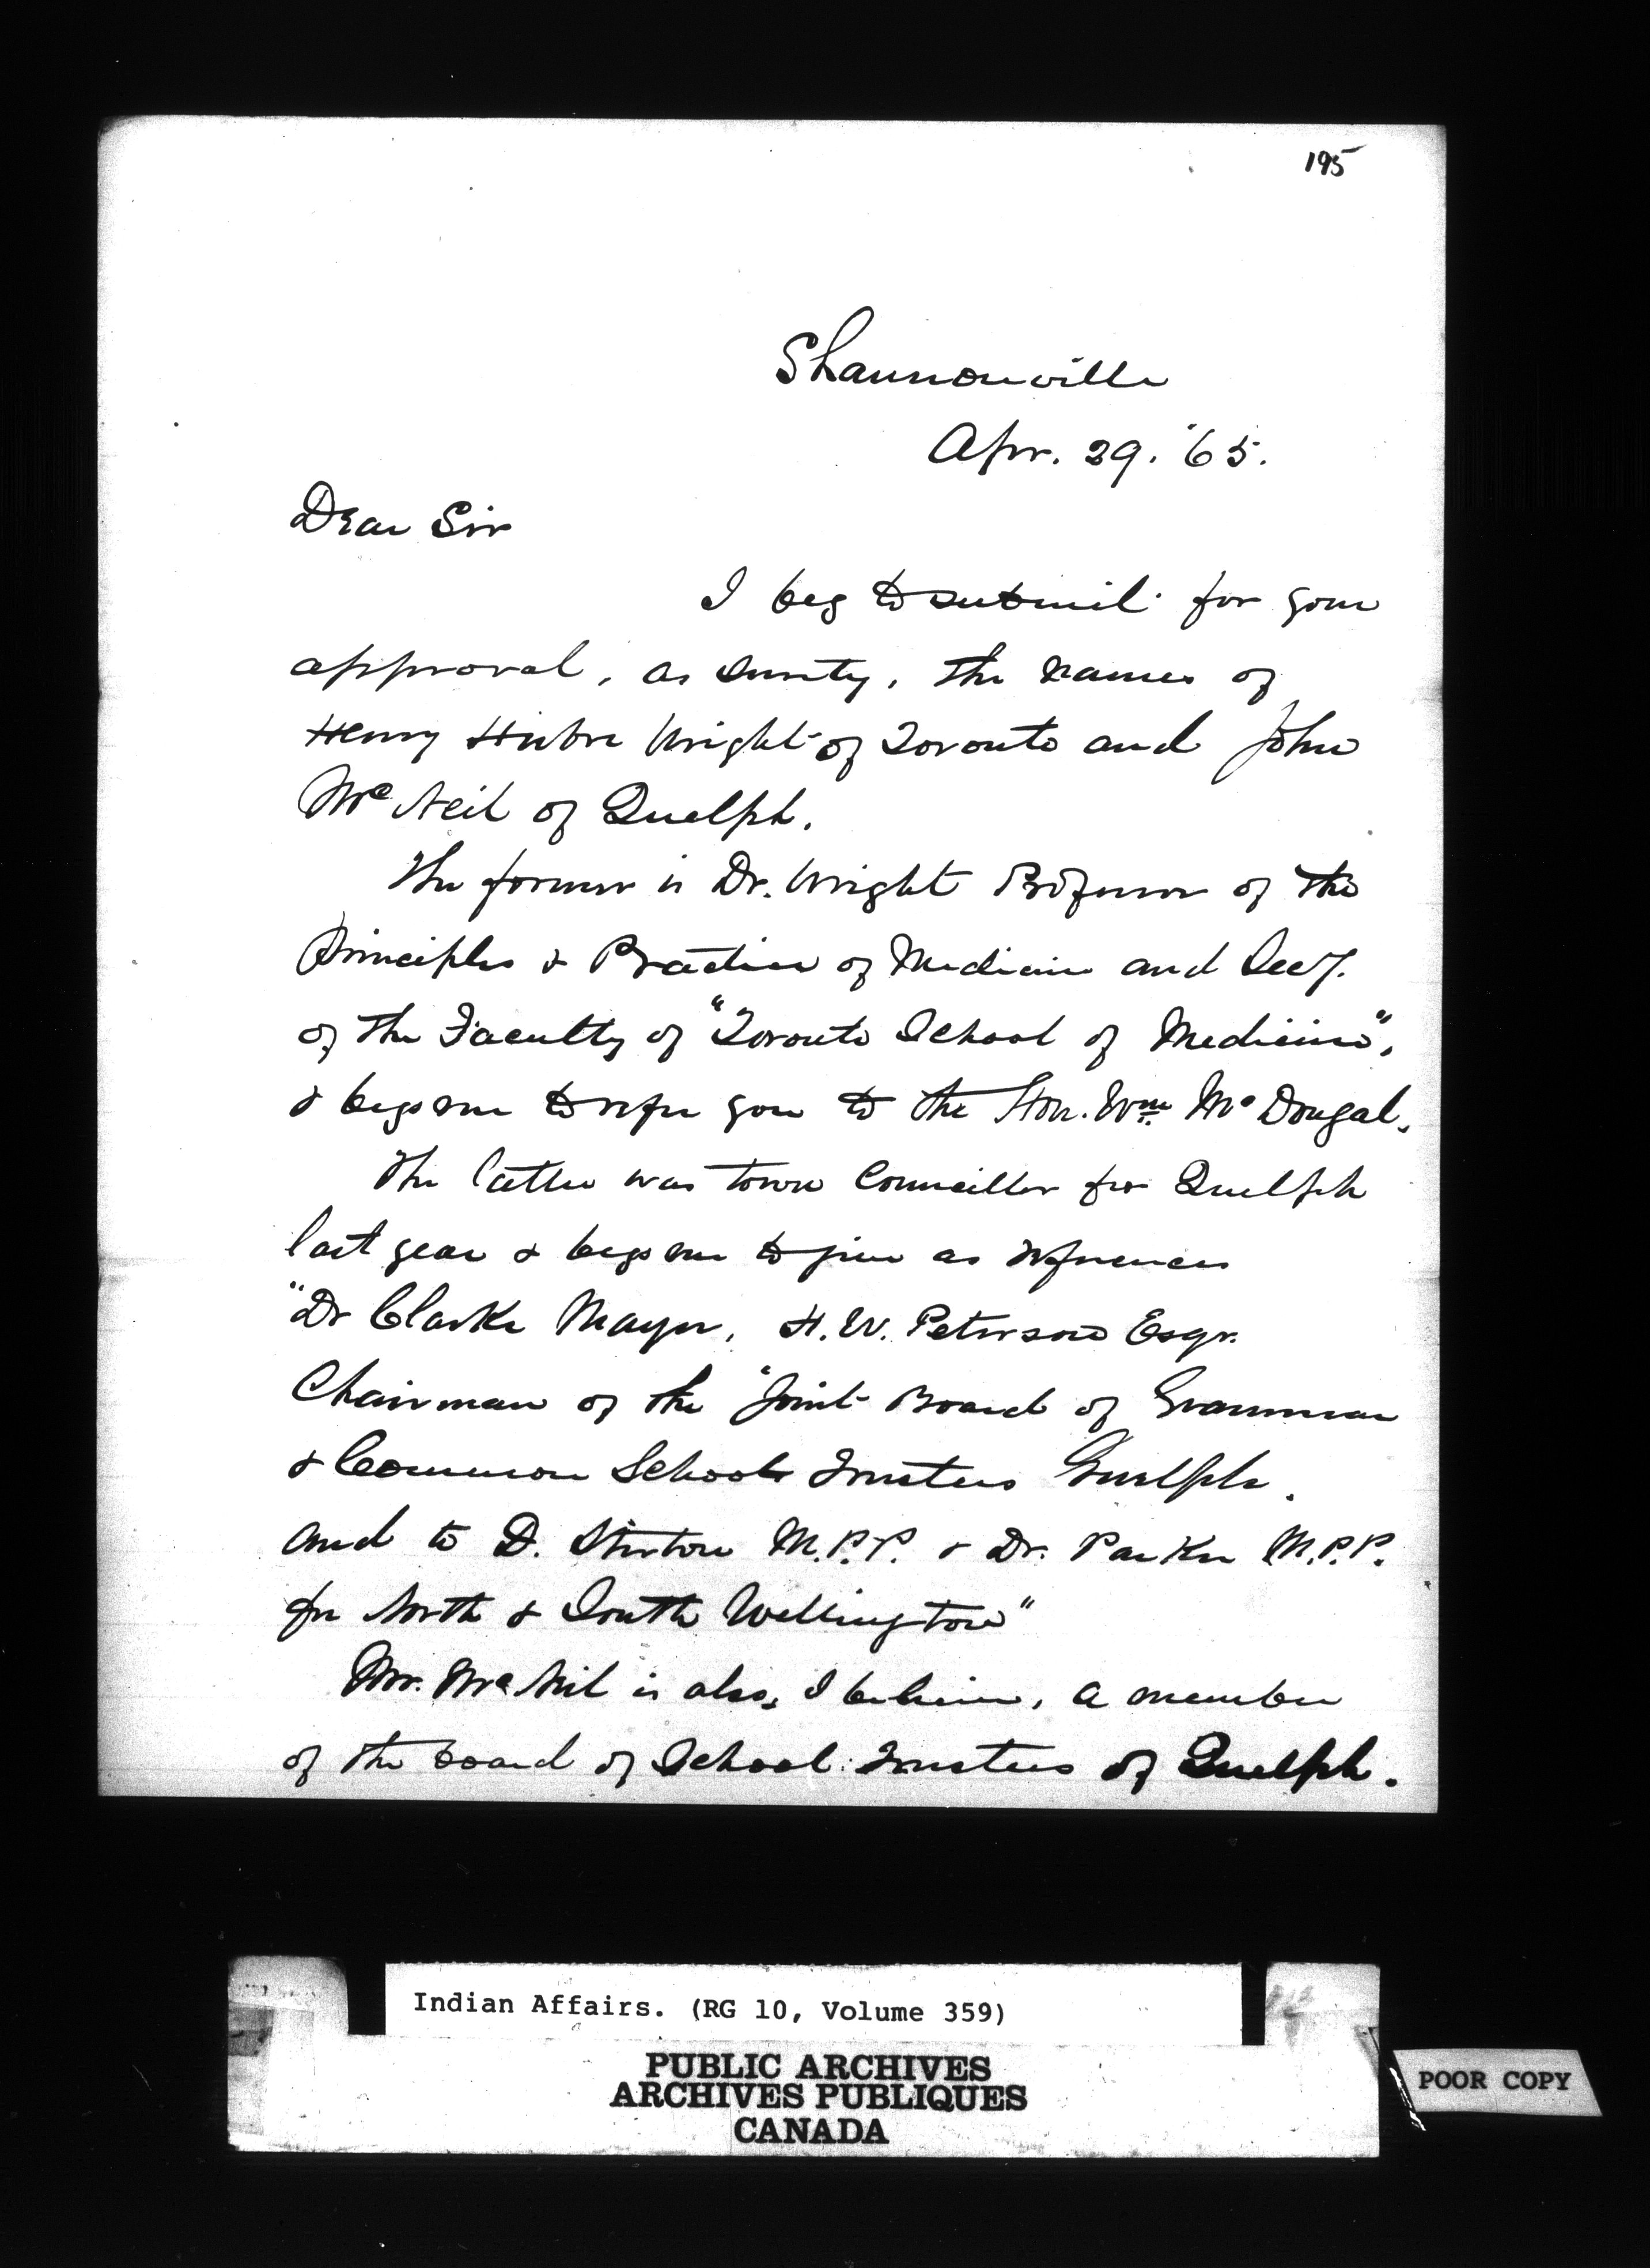 195
Shannonville
Apr. 29. '65.
Dear Sir
I beg to submit for your
approval, as surety, the names of
Henry Hover Wright of Toronto and John
McNeil of Guelph.
The former is Dr. Wright Professor of the
Principles & Practice of Medicine and Secy.
of the Faculty of "Toronto School of Medicine",
& begs me to refer you to the Hon. Wm McDougal.
The latter was town Councillor for Guelph
last year & begs me to give as references
"Dr Clarke Mayor, H. W. Peterson Esqr.
Chairman of the "Joint Board of Grammar
& Common School Trustees Guelph.
and to D. Stirton M.P.P. & Dr. Parker M.P.P.
for North & South Wellington"
Mr. McNeil is also, I believe, a member
of the board of School Trustees of Guelph.
Indian Affairs. (RG 10, Volume 359)
PUBLIC ARCHIVES
ARCHIVES PUBLIQUES
CANADA
POOR COPY